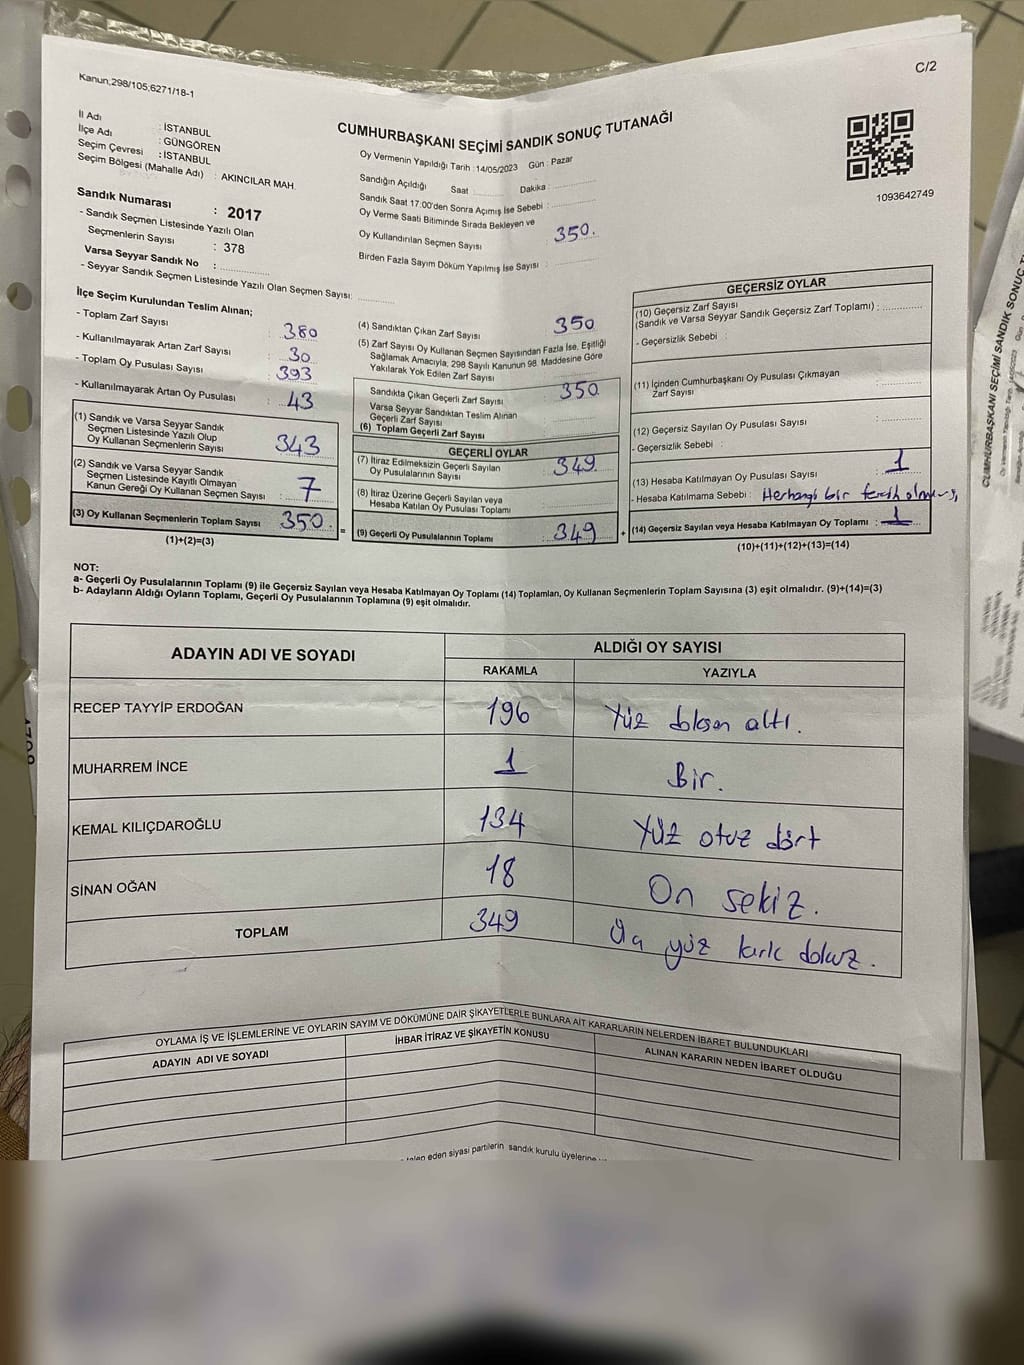 C/2
Kanun:298/105;6271/18-1
İl Adı : İSTANBUL
İlçe Adı : GÜNGÖREN
Seçim Çevresi : İSTANBUL
Seçim Bölgesi (Mahalle Adı) : AKINCILAR MAH.
Sandık Numarası : 2017
- Sandık Seçmen Listesinde Yazılı Olan
Seçmenlerin Sayısı : 378
Varsa Seyyar Sandık No :
- Seyyar Sandık Seçmen Listesinde Yazılı Olan Seçmen Sayısı:
CUMHURBAŞKANI SEÇİMİ SANDIK SONUÇ TUTANAĞI
Oy Vermenin Yapıldığı Tarih : 14/05/2023 Gün : Pazar
Sandığın Açıldığı Saat Dakika :
Sandık Saat 17:00'den Sonra Açımış İse Sebebi :
Oy Verme Saati Bitiminde Sırada Bekleyen ve
Oy Kullandırılan Seçmen Sayısı : 350.
Birden Fazla Sayım Döküm Yapılmış İse Sayısı :
1093642749
İlçe Seçim Kurulundan Teslim Alınan;
- Toplam Zarf Sayısı : 380
- Kullanılmayarak Artan Zarf Sayısı : 30
- Toplam Oy Pusulası Sayısı : 393
- Kullanılmayarak Artan Oy Pusulası : 43
(1) Sandık ve Varsa Seyyar Sandık
Seçmen Listesinde Yazılı Olup
Oy Kullanan Seçmenlerin Sayısı : 343
(2) Sandık ve Varsa Seyyar Sandık
Seçmen Listesinde Kayıtlı Olmayan
Kanun Gereği Oy Kullanan Seçmen Sayısı : 7
(3) Oy Kullanan Seçmenlerin Toplam Sayısı : 350.
(1)+(2)=(3)
(4) Sandıktan Çıkan Zarf Sayısı : 350
(5) Zarf Sayısı Oy Kullanan Seçmen Sayısından Fazla İse, Eşitliği
Sağlamak Amacıyla, 298 Sayılı Kanunun 98. Maddesine Göre
Yakılarak Yok Edilen Zarf Sayısı
Sandıkta Çıkan Geçerli Zarf Sayısı : 350
Varsa Seyyar Sandıktan Teslim Alınan
Geçerli Zarf Sayısı
(6) Toplam Geçerli Zarf Sayısı
GEÇERLİ OYLAR
(7) İtiraz Edilmeksizin Geçerli Sayılan
Oy Pusulalarının Sayısı : 349
(8) İtiraz Üzerine Geçerli Sayılan veya
Hesaba Katılan Oy Pusulası Toplamı
= (9) Geçerli Oy Pusulalarının Toplamı : 349 +
GEÇERSİZ OYLAR
(10) Geçersiz Zarf Sayısı
(Sandık ve Varsa Seyyar Sandık Geçersiz Zarf Toplamı) :
- Geçersizlik Sebebi :
(11) İçinden Cumhurbaşkanı Oy Pusulası Çıkmayan
Zarf Sayısı
(12) Geçersiz Sayılan Oy Pusulası Sayısı
- Geçersizlik Sebebi :
(13) Hesaba Katılmayan Oy Pusulası Sayısı : 1
- Hesaba Katılmama Sebebi : Herhangi bir tercih olmamış
(14) Geçersiz Sayılan veya Hesaba Katılmayan Oy Toplamı : 1
(10)+(11)+(12)+(13)=(14)
NOT:
a- Geçerli Oy Pusulalarının Toplamı (9) ile Geçersiz Sayılan veya Hesaba Katılmayan Oy Toplamı (14) Toplamları, Oy Kullanan Seçmenlerin Toplam Sayısına (3) eşit olmalıdır. (9)+(14)=(3)
b- Adayların Aldığı Oyların Toplamı, Geçerli Oy Pusulalarının Toplamına (9) eşit olmalıdır.
ADAYIN ADI VE SOYADI ALDIĞI OY SAYISI
RAKAMLA YAZIYLA
RECEP TAYYİP ERDOĞAN 196 Yüz doksan altı.
MUHARREM İNCE 1 Bir.
KEMAL KILIÇDAROĞLU 134 Yüz otuz dört
SİNAN OĞAN 18 On sekiz.
TOPLAM 349 Üç yüz kırk dokuz.
OYLAMA İŞ VE İŞLEMLERİNE VE OYLARIN SAYIM VE DÖKÜMÜNE DAİR ŞİKAYETLERLE BUNLARA AİT KARARLARIN NELERDEN İBARET BULUNDUKLARI
ADAYIN ADI VE SOYADI İHBAR İTİRAZ VE ŞİKAYETİN KONUSU ALINAN KARARIN NEDEN İBARET OLDUĞU
talep eden siyasi partilerin sandık kurulu üyelerine
CUMHURBAŞKANI SEÇİMİ SANDIK SONUÇ